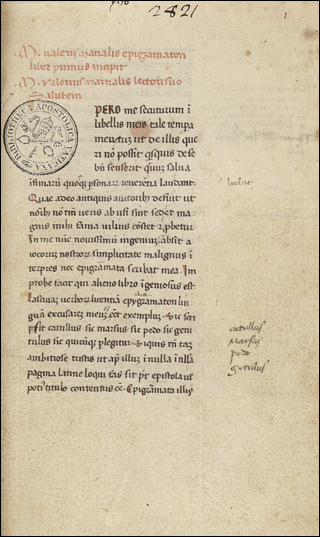 2821
M. valerii Martialis epigramaton
liber primus incipit
M. Valerius martialis lectori suo
Salutem
BIBLIOTHECA APOSTOLICA VATICANA
SPERO me secuturum i
libellis meis tale tempa
mentuz ut de illis que
ri nõ possit qsquis de se
bñ senserit quuz salua
infimarũ quoqz psonarz reuerẽtia laudant
Quae adeo antiquis auctoribz defuit ut
nõibz nõ tm̃ veris ab usi sint sed et ma
gnis mihi fama vilius cõstet et pbetur
In me nouissimũ ingeniuz absit a
iocorũz nostrorz simplicitate malignus i
terpres nec epigramata scribat mea. Im
probe facit qui alieno libro ĩgeniosus est
Lasciuaz verborz licentiã epygramaton lin
guã excusarez meuz eẽt exempluz. Sic scri
psit catullus sic marsus sic pedo sic getu
tulus sic quicũqz plegitur. Siquis tñ taz
ambitiose tristis ut ap illuz ĩ nulla
pagina latine loqui fas sit põt epistola ul
poti titulo contentus eẽ. Epigrãmata illiz
catullus
Marsus
pedo
getulus